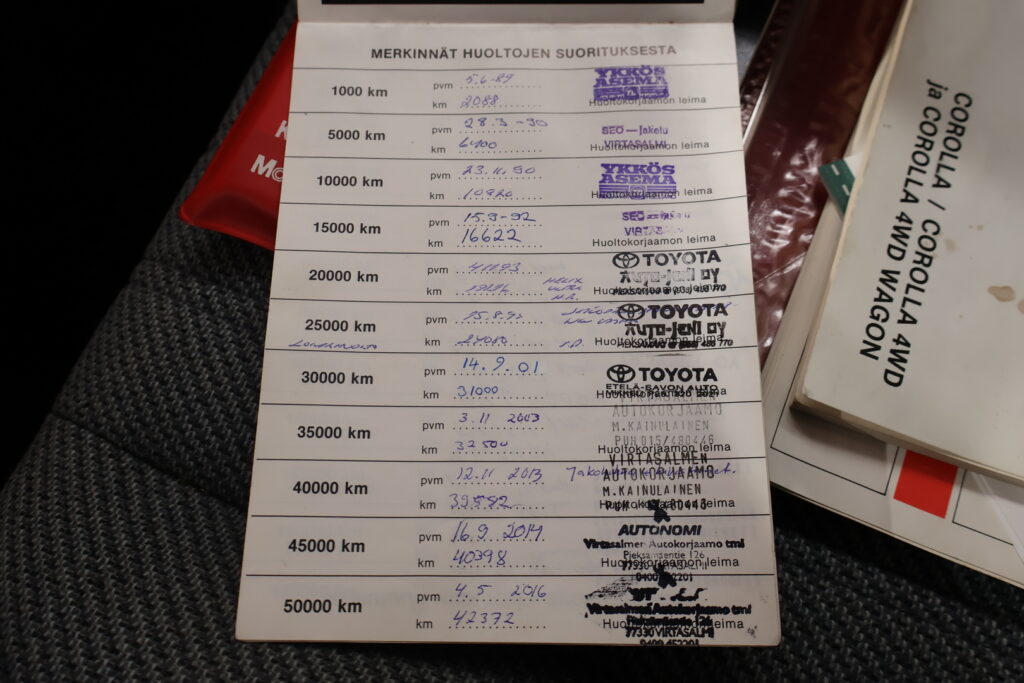 MERKINNÄT HUOLTOJEN SUORITUKSESTA
1000 km
pvm 5.6-89
km 2088
YKKÖS
ASEMA
Huoltokorjaamon leima
5000 km
pvm 28.3-90
km 6400
SEO-Jakelu
VIRTASALMI
Huoltokorjaamon leima
10000 km
pvm 23.11.90
km 10920
YKKÖS
ASEMA
Huoltokorjaamon leima
15000 km
pvm 15.9-92
km 16622
SEO
Huoltokorjaamon leima
20000 km
pvm
km
TOYOTA
Auto-Jeni oy
25000 km
pvm 15.8.
km
TOYOTA
Auto-Jeni oy
Huoltokorjaamon leima
30000 km
pvm 14.9.01
km 31000
TOYOTA
ETELÄ-SAVON AUTO
35000 km
pvm 3.11 2003
km 32500
VIRTASALMEN
AUTOKORJAAMO
M.KAINULAINEN
PUH 015/480446
Huoltokorjaamon leima
40000 km
pvm 12.11 2013
km 39582
VIRTASALMEN
AUTOKORJAAMO
M.KAINULAINEN
Huoltokorjaamon leima
45000 km
pvm 16.9.2014
km 40398
AUTONOMI
Virtasalmen Autokorjaamo tmi
Pieksämäentie 126
77330 VIRTASALMI
Huoltokorjaamon leima
50000 km
pvm 4.5 2016
km 42372
Virtasalmen Autokorjaamo tmi
77330 VIRTASALMI
Huoltokorjaamon leima
COROLLA / COROLLA 4WD
ja COROLLA 4WD WAGON